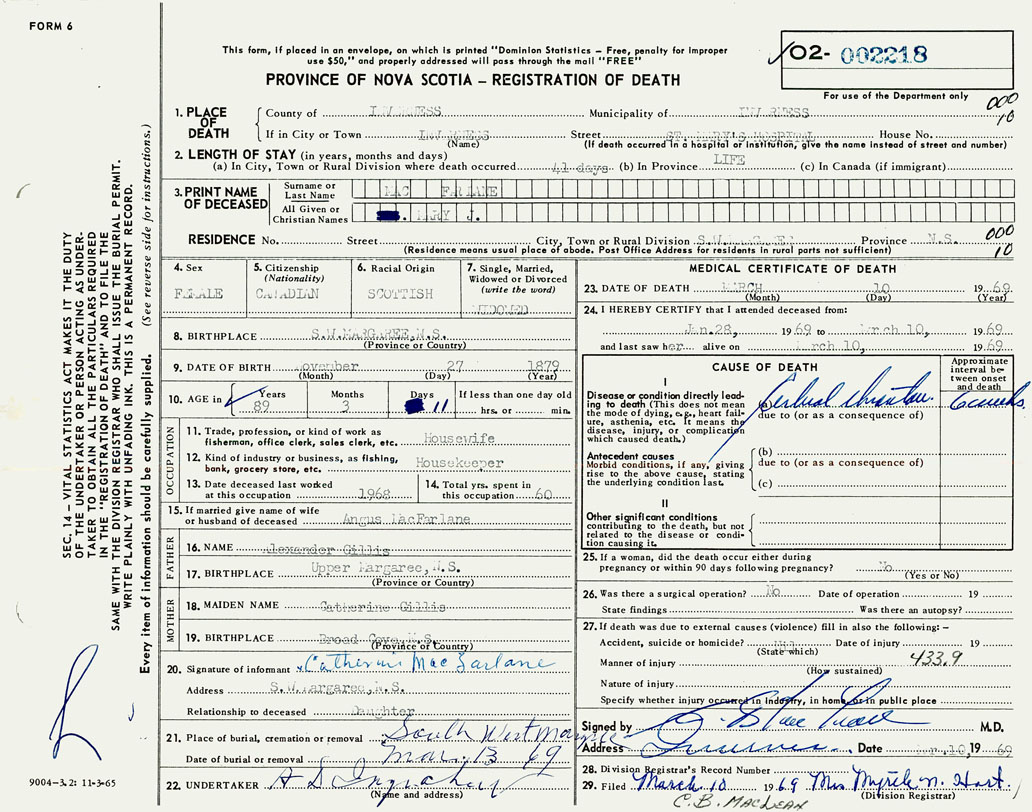 FORM 6
This form, if placed in an envelope, on which is printed "Dominion Statistics – Free, penalty for improper
use $50," and properly addressed will pass through the mail "FREE"
PROVINCE OF NOVA SCOTIA – REGISTRATION OF DEATH
02- 002218
For use of the Department only
000
10
1. PLACE OF DEATH
County of INVERNESS Municipality of INVERNESS
If in City or Town INVERNESS Street ST. MARY'S HOSPITAL House No.
(Name) (If death occurred in a hospital or institution, give the name instead of street and number)
2. LENGTH OF STAY (in years, months and days)
(a) In City, Town or Rural Division where death occurred 41 days (b) In Province LIFE (c) In Canada (if immigrant)
3. PRINT NAME OF DECEASED
Surname or Last Name MAC FARLANE
All Given or Christian Names MARY J.
RESIDENCE No. Street City, Town or Rural Division S.W. MARGAREE Province N.S.
000
10
(Residence means usual place of abode. Post Office Address for residents in rural parts not sufficient)
4. Sex FEMALE
5. Citizenship (Nationality) CANADIAN
6. Racial Origin SCOTTISH
7. Single, Married, Widowed or Divorced (write the word) WIDOWED
8. BIRTHPLACE S.W.MARGAREE,N.S.
(Province or Country)
9. DATE OF BIRTH November 27 1879
(Month) (Day) (Year)
10. AGE in Years Months Days If less than one day old
89 3 11 hrs. or min.
OCCUPATION
11. Trade, profession, or kind of work as fisherman, office clerk, sales clerk, etc. Housewife
12. Kind of industry or business, as fishing, bank, grocery store, etc. Housekeeper
13. Date deceased last worked at this occupation 1968
14. Total yrs. spent in this occupation 60
15. If married give name of wife or husband of deceased Angus MacFarlane
FATHER
16. NAME Alexander Gillis
17. BIRTHPLACE Upper Margaree, N.S.
(Province or Country)
MOTHER
18. MAIDEN NAME Catherine Gillis
19. BIRTHPLACE Broad Cove, N.S.
(Province or Country)
20. Signature of informant Catherine MacFarlane
Address S.W.Margaree,N.S.
Relationship to deceased Daughter
21. Place of burial, cremation or removal South West Margaree
Date of burial or removal Mar. 13 69
22. UNDERTAKER
(Name and address)
MEDICAL CERTIFICATE OF DEATH
23. DATE OF DEATH MARCH 10 1969
(Month) (Day) (Year)
24. I HEREBY CERTIFY that I attended deceased from:
Jan.28, 1969 to March 10, 1969
and last saw her alive on March 10, 1969
CAUSE OF DEATH
Approximate interval between onset and death
I
Disease or condition directly leading to death (This does not mean the mode of dying, e.g., heart failure, asthenia, etc. It means the disease, injury, or complication which caused death.)
(a) Cerebral 6 weeks
due to (or as a consequence of)
Antecedent causes
Morbid conditions, if any, giving rise to the above cause, stating the underlying condition last.
(b)
due to (or as a consequence of)
(c)
II
Other significant conditions
contributing to the death, but not related to the disease or condition causing it.
25. If a woman, did the death occur either during pregnancy or within 90 days following pregnancy? No
(Yes or No)
26. Was there a surgical operation? No Date of operation 19
State findings Was there an autopsy?
27. If death was due to external causes (violence) fill in also the following:–
Accident, suicide or homicide? Date of injury 19
(State which)
Manner of injury 433.9
(How sustained)
Nature of injury
Specify whether injury occurred in industry, in home, or in public place
Signed by M.D.
Address Inverness Date Mar.10, 19 69
28. Division Registrar's Record Number
29. Filed March 10 1969 Mrs Myrtle N. Hart
(Division Registrar)
C.B. MACLEAN
SEC. 14 – VITAL STATISTICS ACT MAKES IT THE DUTY
OF THE UNDERTAKER OR PERSON ACTING AS UNDER-
TAKER TO OBTAIN ALL THE PARTICULARS REQUIRED
IN THE "REGISTRATION OF DEATH" AND TO FILE THE
SAME WITH THE DIVISION REGISTRAR WHO SHALL ISSUE THE BURIAL PERMIT.
WRITE PLAINLY WITH UNFADING INK. THIS IS A PERMANENT RECORD.
Every item of information should be carefully supplied. (See reverse side for instructions.)
9004-3.2: 11-3-65